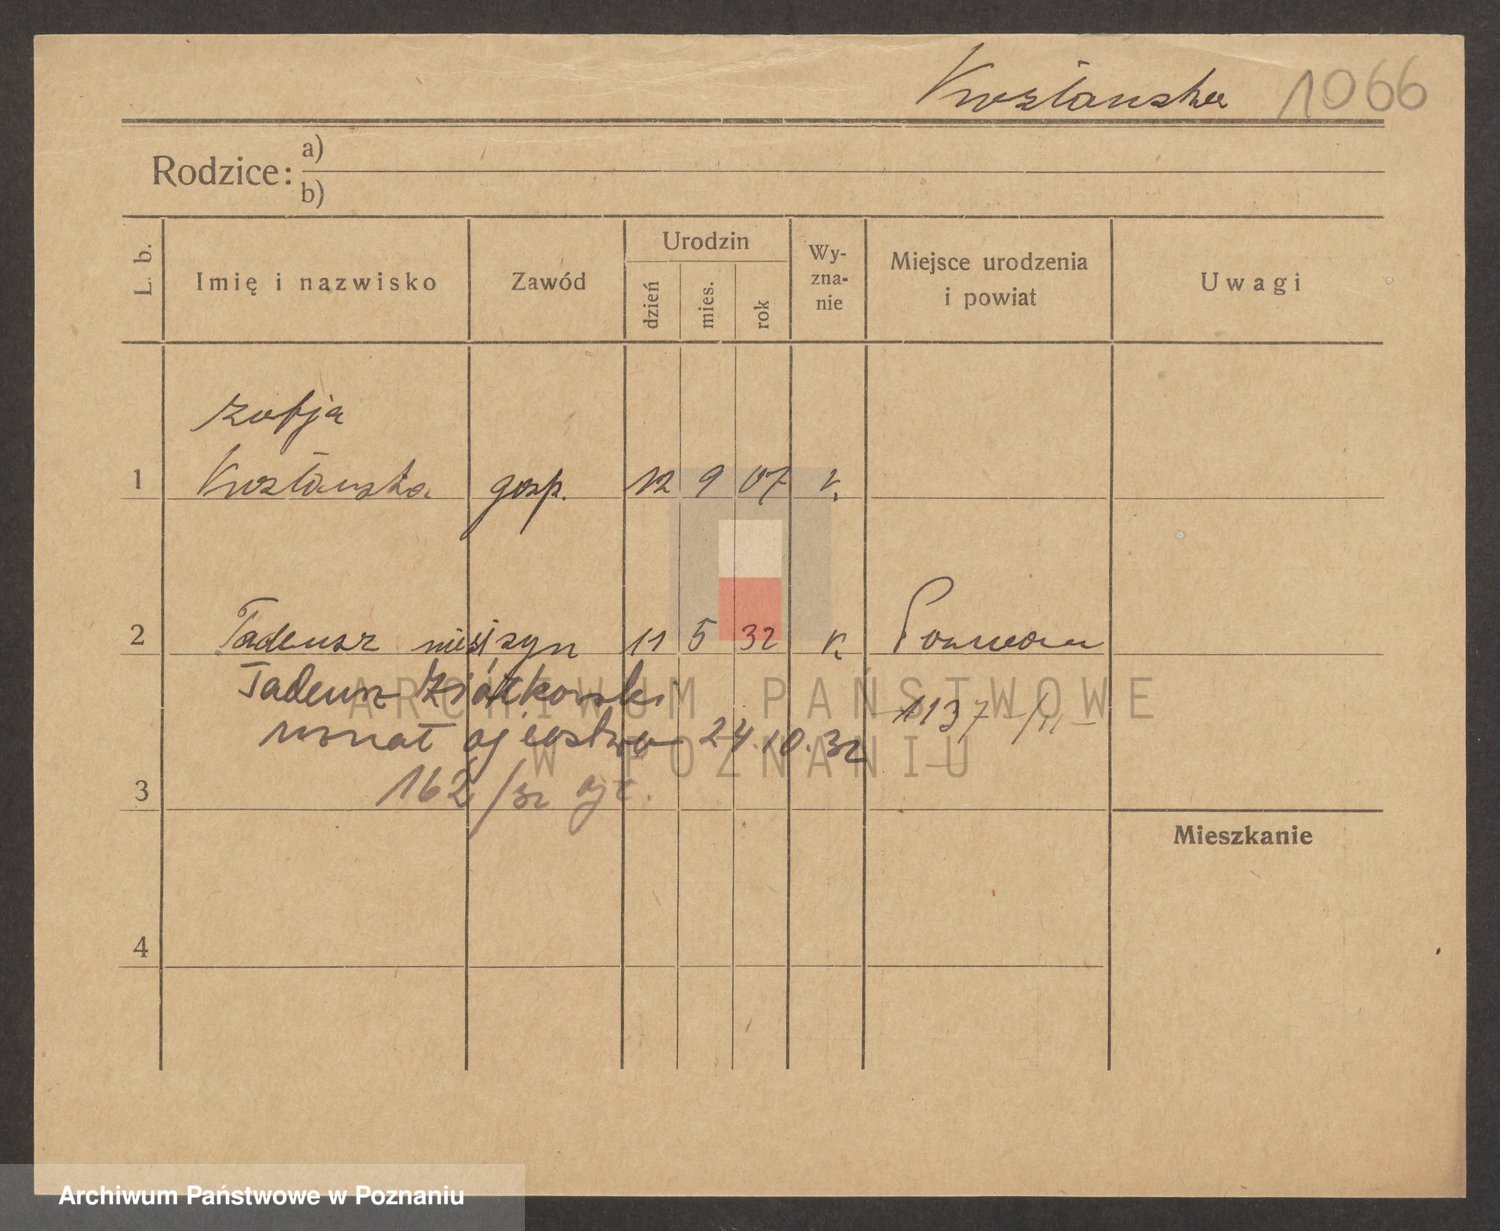 1066
Rodzice: a)
b)
L. b.
Imię i nazwisko
Zawód
Urodzin
dzień
mies.
rok
Wy-
zna-
nie
Miejsce urodzenia
i powiat
Uwagi
Zofja
1 gosp. 12 9 07 k.
2 Tadeusz syn 11 5 32 k.
Tadeusz Ziółkowski 1137
uznał ojcostwo 24.10.32
3 162/32 ojc.
Mieszkanie
4
ARCHIWUM PAŃSTWOWE
W POZNANIU
Archiwum Państwowe w Poznaniu